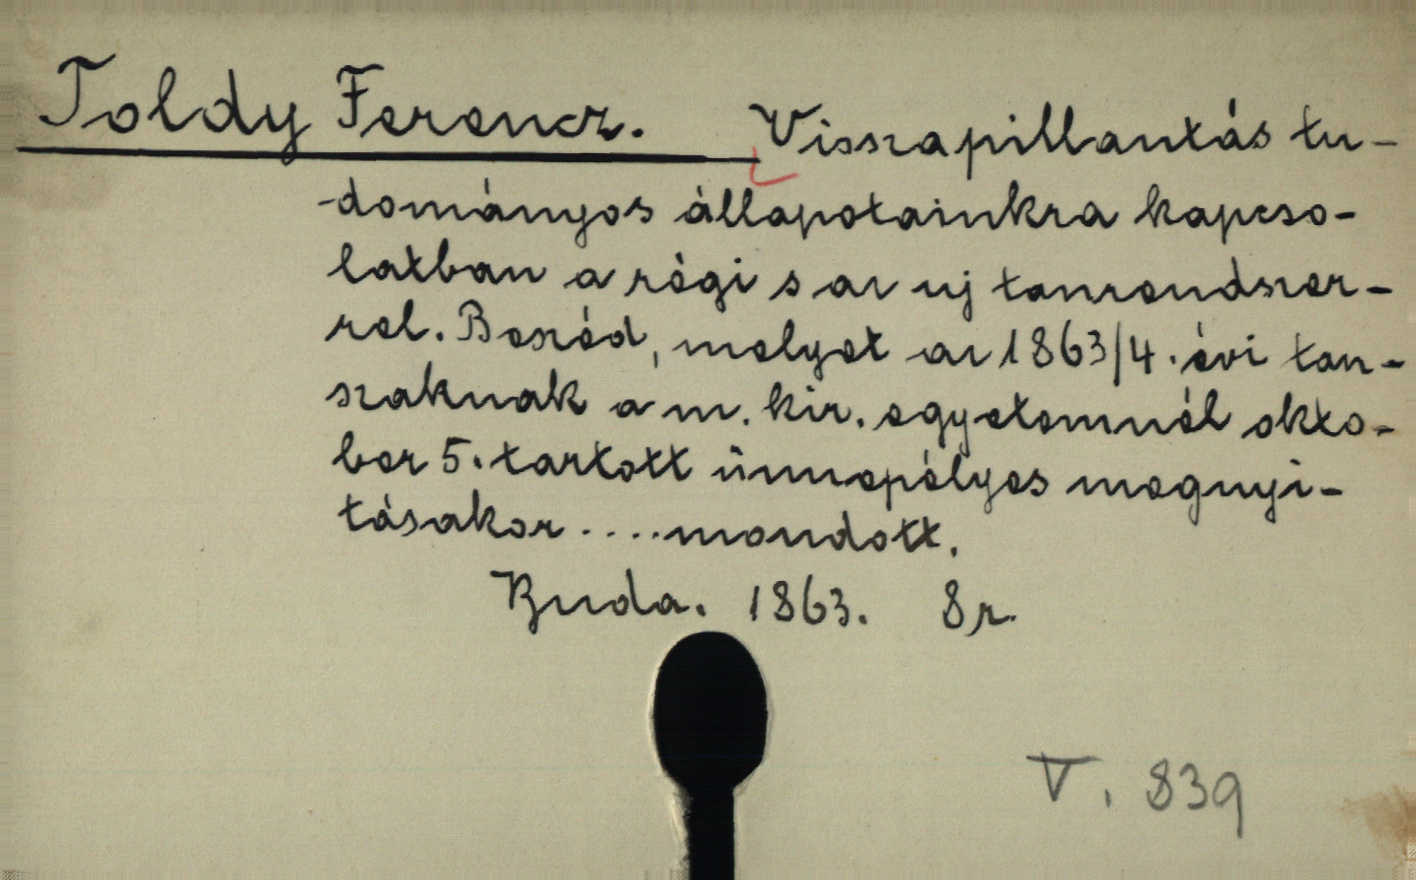 Toldy Ferencz. Visszapillantás tu-
-dományos állapotainkra kapcso-
latban a régi s az uj tanrendszer-
rel. Beszéd, melyet az 1863/4. évi tan-
szaknak a m. kir. egyetemnél okto-
ber 5. tartott ünnepélyes megnyi-
tásakor .... mondott.
Buda. 1863. 8r.
V. 839